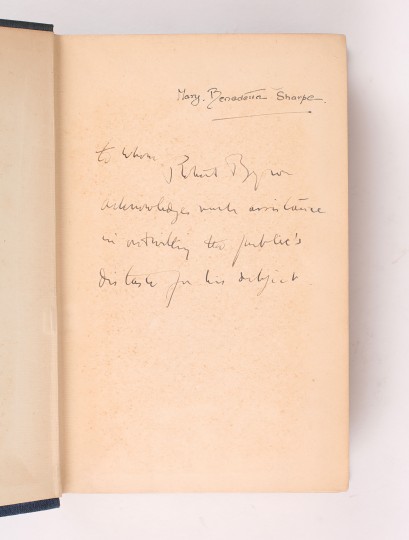 Mary. Benedetta Sharpe.
to whom, Robert Byron
acknowledges much assistance
in outwitting the public's
distaste for his subject.